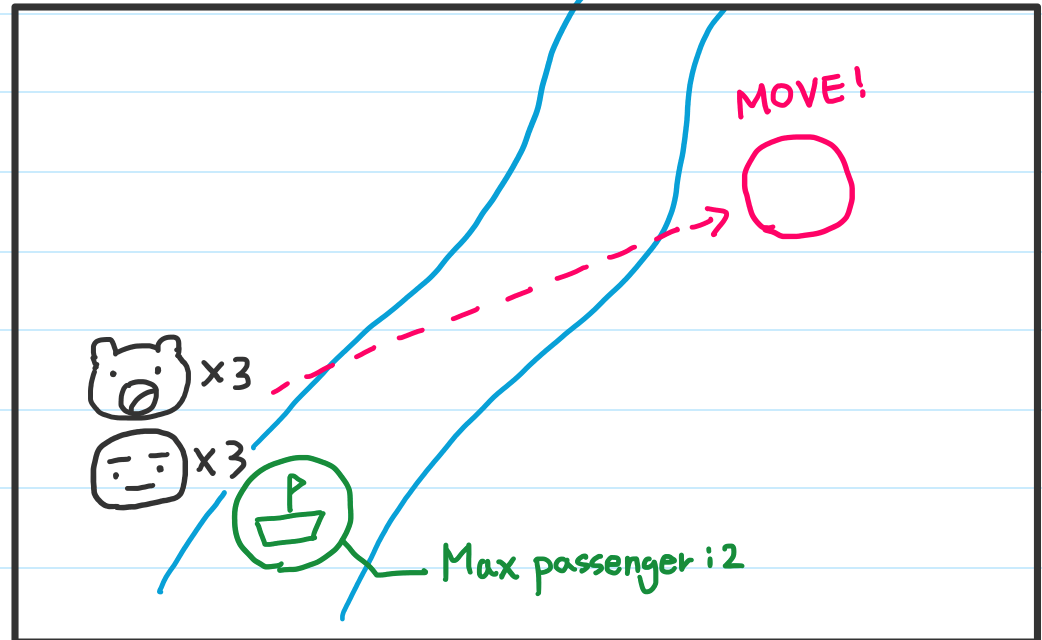 MOVE!
×3
×3
Max passenger : 2